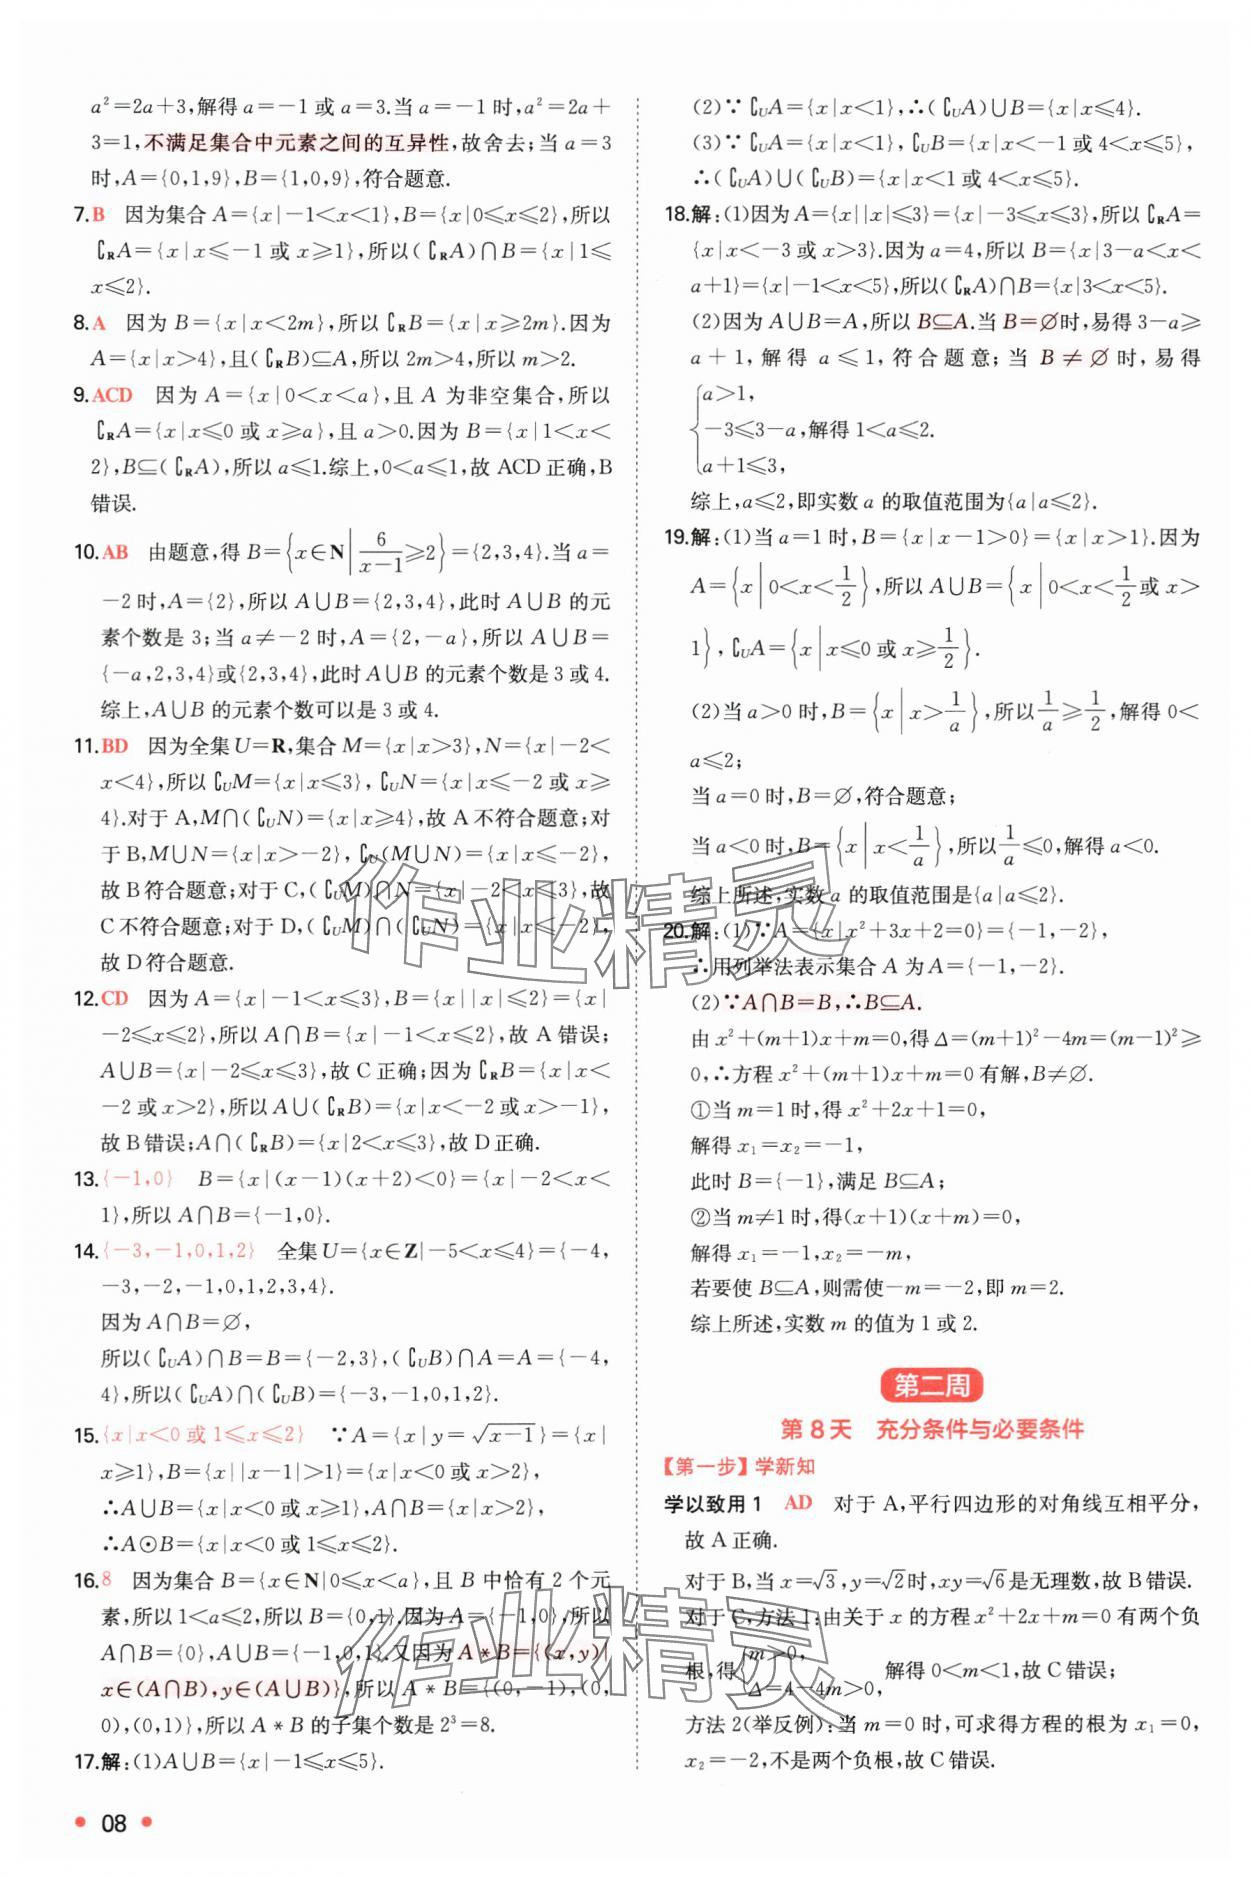 a²=2a+3,解得a=-1或a=3.当a=-1时,a²=2a+
3=1,不满足集合中元素之间的互异性,故舍去;当a=3
时,A={0,1,9},B={1,0,9},符合题意.
7.B 因为集合A={x|-1<x<1},B={x|0⩽x⩽2},所以
∁RA={x|x⩽-1或x⩾1},所以(∁RA)∩B={x|1⩽
x⩽2}.
8.A 因为B={x|x<2m},所以∁RB={x|x⩾2m}.因为
A={x|x>4},且(∁RB)⊆A,所以2m>4,所以m>2.
9.ACD 因为A={x|0<x<a},且A为非空集合,所以
∁RA={x|x⩽0或x⩾a},且a>0.因为B={x|1<x<
2},B⊆(∁RA),所以a⩽1.综上,0<a⩽1,故ACD正确,B
错误.
10.AB 由题意,得B={x∈N|6/(x-1)⩾2}={2,3,4}.当a=
-2时,A={2},所以A∪B={2,3,4},此时A∪B的元
素个数是3;当a≠-2时,A={2,-a},所以A∪B=
{-a,2,3,4}或{2,3,4},此时A∪B的元素个数是3或4.
综上,A∪B的元素个数可以是3或4.
11.BD 因为全集U=R,集合M={x|x>3},N={x|-2<
x<4},所以∁UM={x|x⩽3},∁UN={x|x⩽-2或x⩾
4}.对于A,M∩(∁UN)={x|x⩾4},故A不符合题意;对
于B,M∪N={x|x>-2},∁U(M∪N)={x|x⩽-2},
故B符合题意;对于C,(∁UM)∩N={x|-2<x⩽3},故
C不符合题意;对于D,(∁UM)∩(∁UN)={x|x⩽-2},
故D符合题意.
12.CD 因为A={x|-1<x⩽3},B={x||x|⩽2}={x|
-2⩽x⩽2},所以A∩B={x|-1<x⩽2},故A错误;
A∪B={x|-2⩽x⩽3},故C正确;因为∁RB={x|x<
-2或x>2},所以A∪(∁RB)={x|x<-2或x>-1},
故B错误;A∩(∁RB)={x|2<x⩽3},故D正确.
13.{-1,0} B={x|(x-1)(x+2)<0}={x|-2<x<
1},所以A∩B={-1,0}.
14.{-3,-1,0,1,2} 全集U={x∈Z|-5<x⩽4}={-4,
-3,-2,-1,0,1,2,3,4}.
因为A∩B=∅,
所以(∁UA)∩B=B={-2,3},(∁UB)∩A=A={-4,
4},所以(∁UA)∩(∁UB)={-3,-1,0,1,2}.
15.{x|x<0或1⩽x⩽2} ∵A={x|y=√(x-1)}={x|
x⩾1},B={x||x-1|>1}={x|x<0或x>2},
∴A∪B={x|x<0或x⩾1},A∩B={x|x>2},
∴A⊙B={x|x<0或1⩽x⩽2}.
16.8 因为集合B={x∈N|0⩽x<a},且B中恰有2个元
素,所以1<a⩽2,所以B={0,1}.因为A={-1,0},所以
A∩B={0},A∪B={-1,0,1}.又因为A*B={(x,y)|
x∈(A∩B),y∈(A∪B)},所以A*B={(0,-1),(0,
0),(0,1)},所以A*B的子集个数是2³=8.
17.解:(1)A∪B={x|-1⩽x⩽5}.
08
(2)∵∁UA={x|x<1},∴(∁UA)∪B={x|x⩽4}.
(3)∵∁UA={x|x<1},∁UB={x|x<-1或4<x⩽5},
∴(∁UA)∪(∁UB)={x|x<1或4<x⩽5}.
18.解:(1)因为A={x||x|⩽3}={x|-3⩽x⩽3},∁RA=
{x|x<-3或x>3}.因为a=4,所以B={x|3-a<x<
a+1}={x|-1<x<5},所以(∁RA)∩B={x|3<x<5}.
(2)因为A∪B=A,所以B⊆A.当B=∅时,易得3-a⩾
a+1,解得a⩽1,符合题意;当B≠∅时,易得
{a>1,
-3⩽3-a,解得1<a⩽2.
a+1⩽3,
综上,a⩽2,即实数a的取值范围为{a|a⩽2}.
19.解:(1)当a=1时,B={x|x-1>0}={x|x>1}.因为
A={x|0<x<1/2},所以A∪B={x|0<x<1/2或x>
1},∁UA={x|x⩽0或x⩾1/2}.
(2)当a>0时,B={x|x>1/a},所以1/a⩾1/2,解得0<
a⩽2;
当a=0时,B=∅,符合题意;
当a<0时,B={x|x<1/a},所以1/a⩽0,解得a<0.
综上所述,实数a的取值范围是{a|a⩽2}.
20.解:(1)∵A={x|x²+3x+2=0}={-1,-2},
∴用列举法表示集合A为A={-1,-2}.
(2)∵A∩B=B,∴B⊆A.
由x²+(m+1)x+m=0,得Δ=(m+1)²-4m=(m-1)²⩾
0,∴方程x²+(m+1)x+m=0有解,B≠∅.
①当m=1时,得x²+2x+1=0,
解得x₁=x₂=-1,
此时B={-1},满足B⊆A;
②当m≠1时,得(x+1)(x+m)=0,
解得x₁=-1,x₂=-m,
若要使B⊆A,则需使-m=-2,即m=2.
综上所述,实数m的值为1或2.
第二周
第8天 充分条件与必要条件
【第一步】学新知
学以致用1 AD 对于A,平行四边形的对角线互相平分,
故A正确.
对于B,当x=√3,y=√2时,xy=√6是无理数,故B错误.
对于C,方法1:由关于x的方程x²+2x+m=0有两个负
根,得{m>0, Δ=4-4m>0, 解得0<m<1,故C错误;
方法2(举反例):当m=0时,可求得方程的根为x₁=0,
x₂=-2,不是两个负根,故C错误.
作业精灵
作业精灵